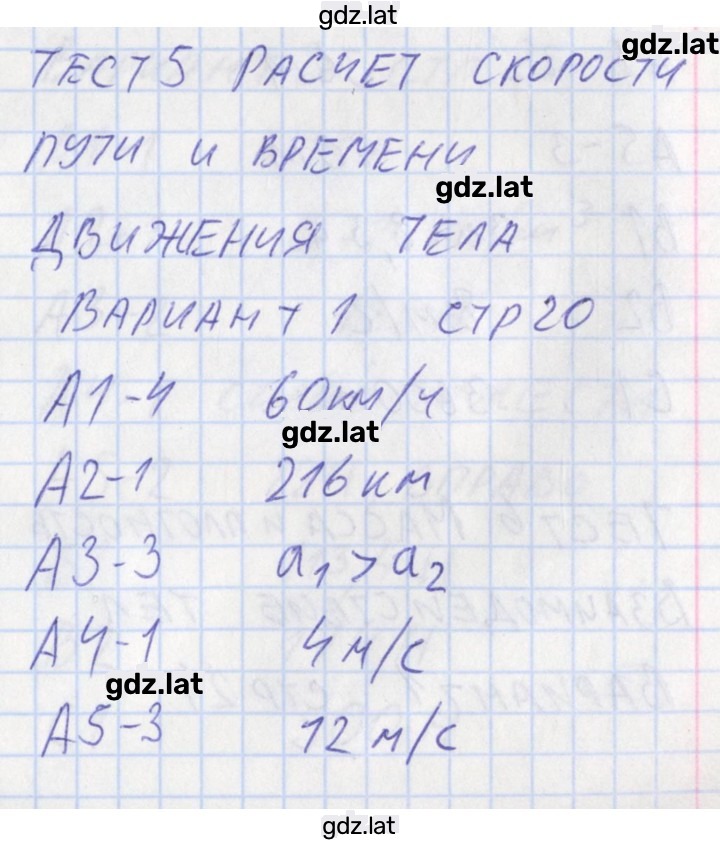 gdz.lat
gdz.lat
ТЕСТ 5 РАСЧЕТ СКОРОСТИ
ПУТИ И ВРЕМЕНИ
gdz.lat
ДВИЖЕНИЯ ТЕЛА
ВАРИАНТ 1 СТР 20
А1-4 60км/ч
gdz.lat
А2-1 216 км
А3-3 a1 > a2
А4-1 4 м/с
gdz.lat
А5-3 12 м/с
gdz.lat